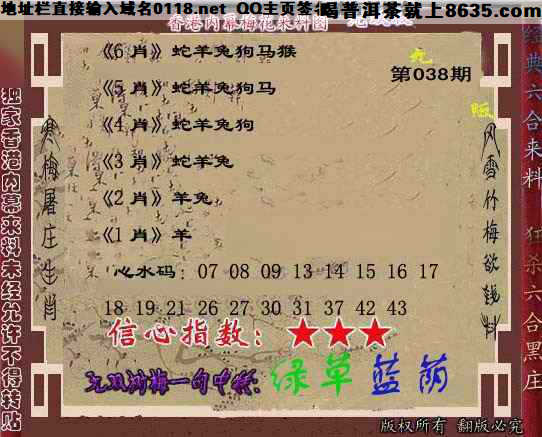 地址栏直接输入域名0118.net QQ主页签名
喝普洱茶就上8635.com
香港内幕梅花来料图
《6 肖》蛇羊兔狗马猴
第038期
《5 肖》蛇羊兔狗马
《4 肖》蛇羊兔狗
《3 肖》蛇羊兔
《2 肖》羊兔
《1 肖》羊
心水码: 07 08 09 13 14 15 16 17
18 19 21 26 27 30 31 37 42 43
信心指数: ★★★
绿草蓝荫
版权所有 翻版必究
独家香港内幕来料未经允许不得转贴
寒梅屠庄生肖
风雪竹梅欲钱料
经典六合来料
狂杀六合黑庄